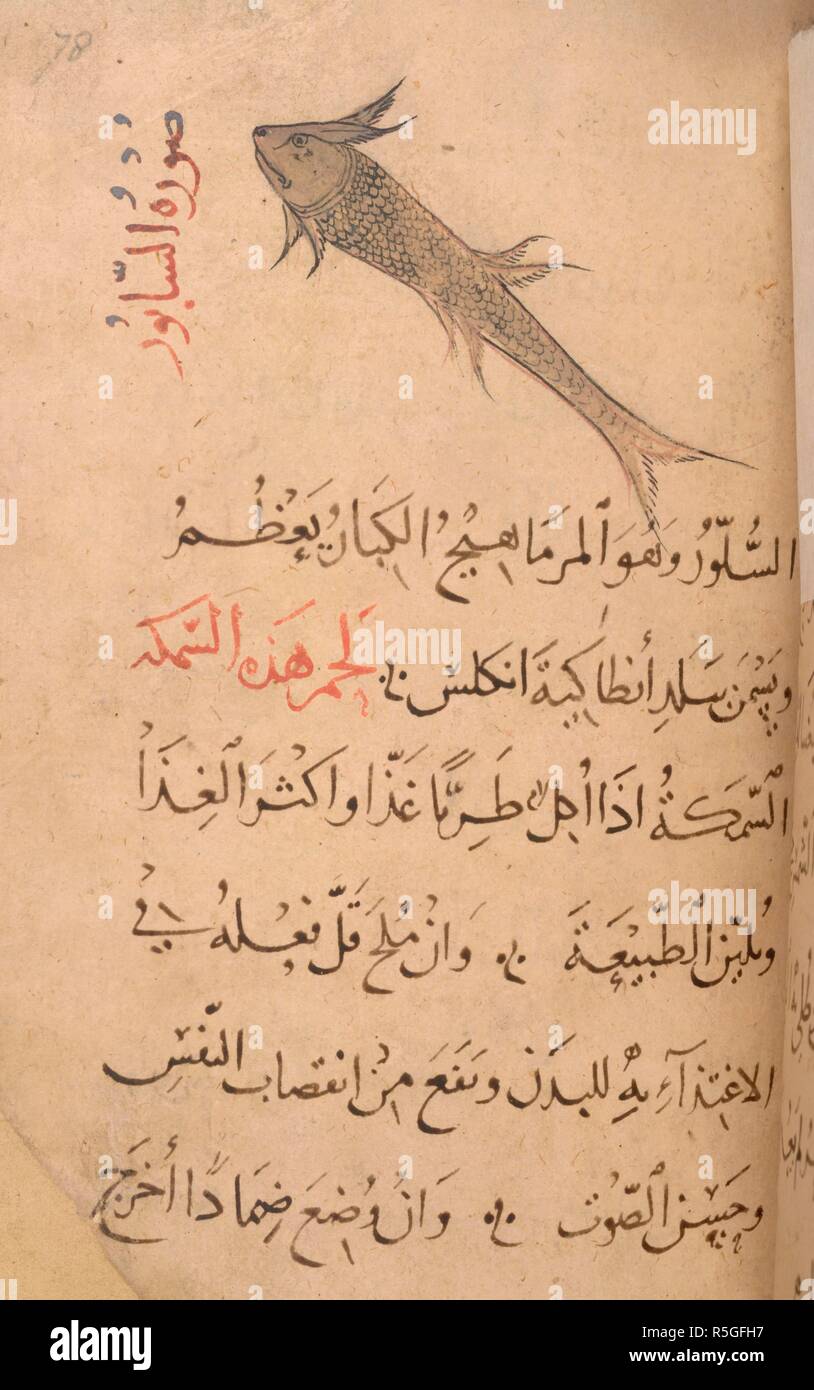 78
صورة السابور
السُّلّورُ وَهُوَ ٱلمرمَاهيج الكبارُ يَعْظُمُ
ويَسْمَن ببلدِ أنطاكيةَ انكلس لحم هَذه السّمكه
ٱلسّمكةُ اذَا اُكل طَرِيًّا غَذّا واكثرَ الغِذَا
وليّن ٱلطّبيعَةَ وَانْ مُلحَ قَلّ فعْلهُ في
الاغتذآءِ بهِ للبدَن ونفعَ مِنْ انتصاب النّفسِ
وحَسّن ٱلصّوت وَانْ وُضعَ ضِمَادًا أخرَجَ
alamy
Image ID: R5GFH7
www.alamy.com